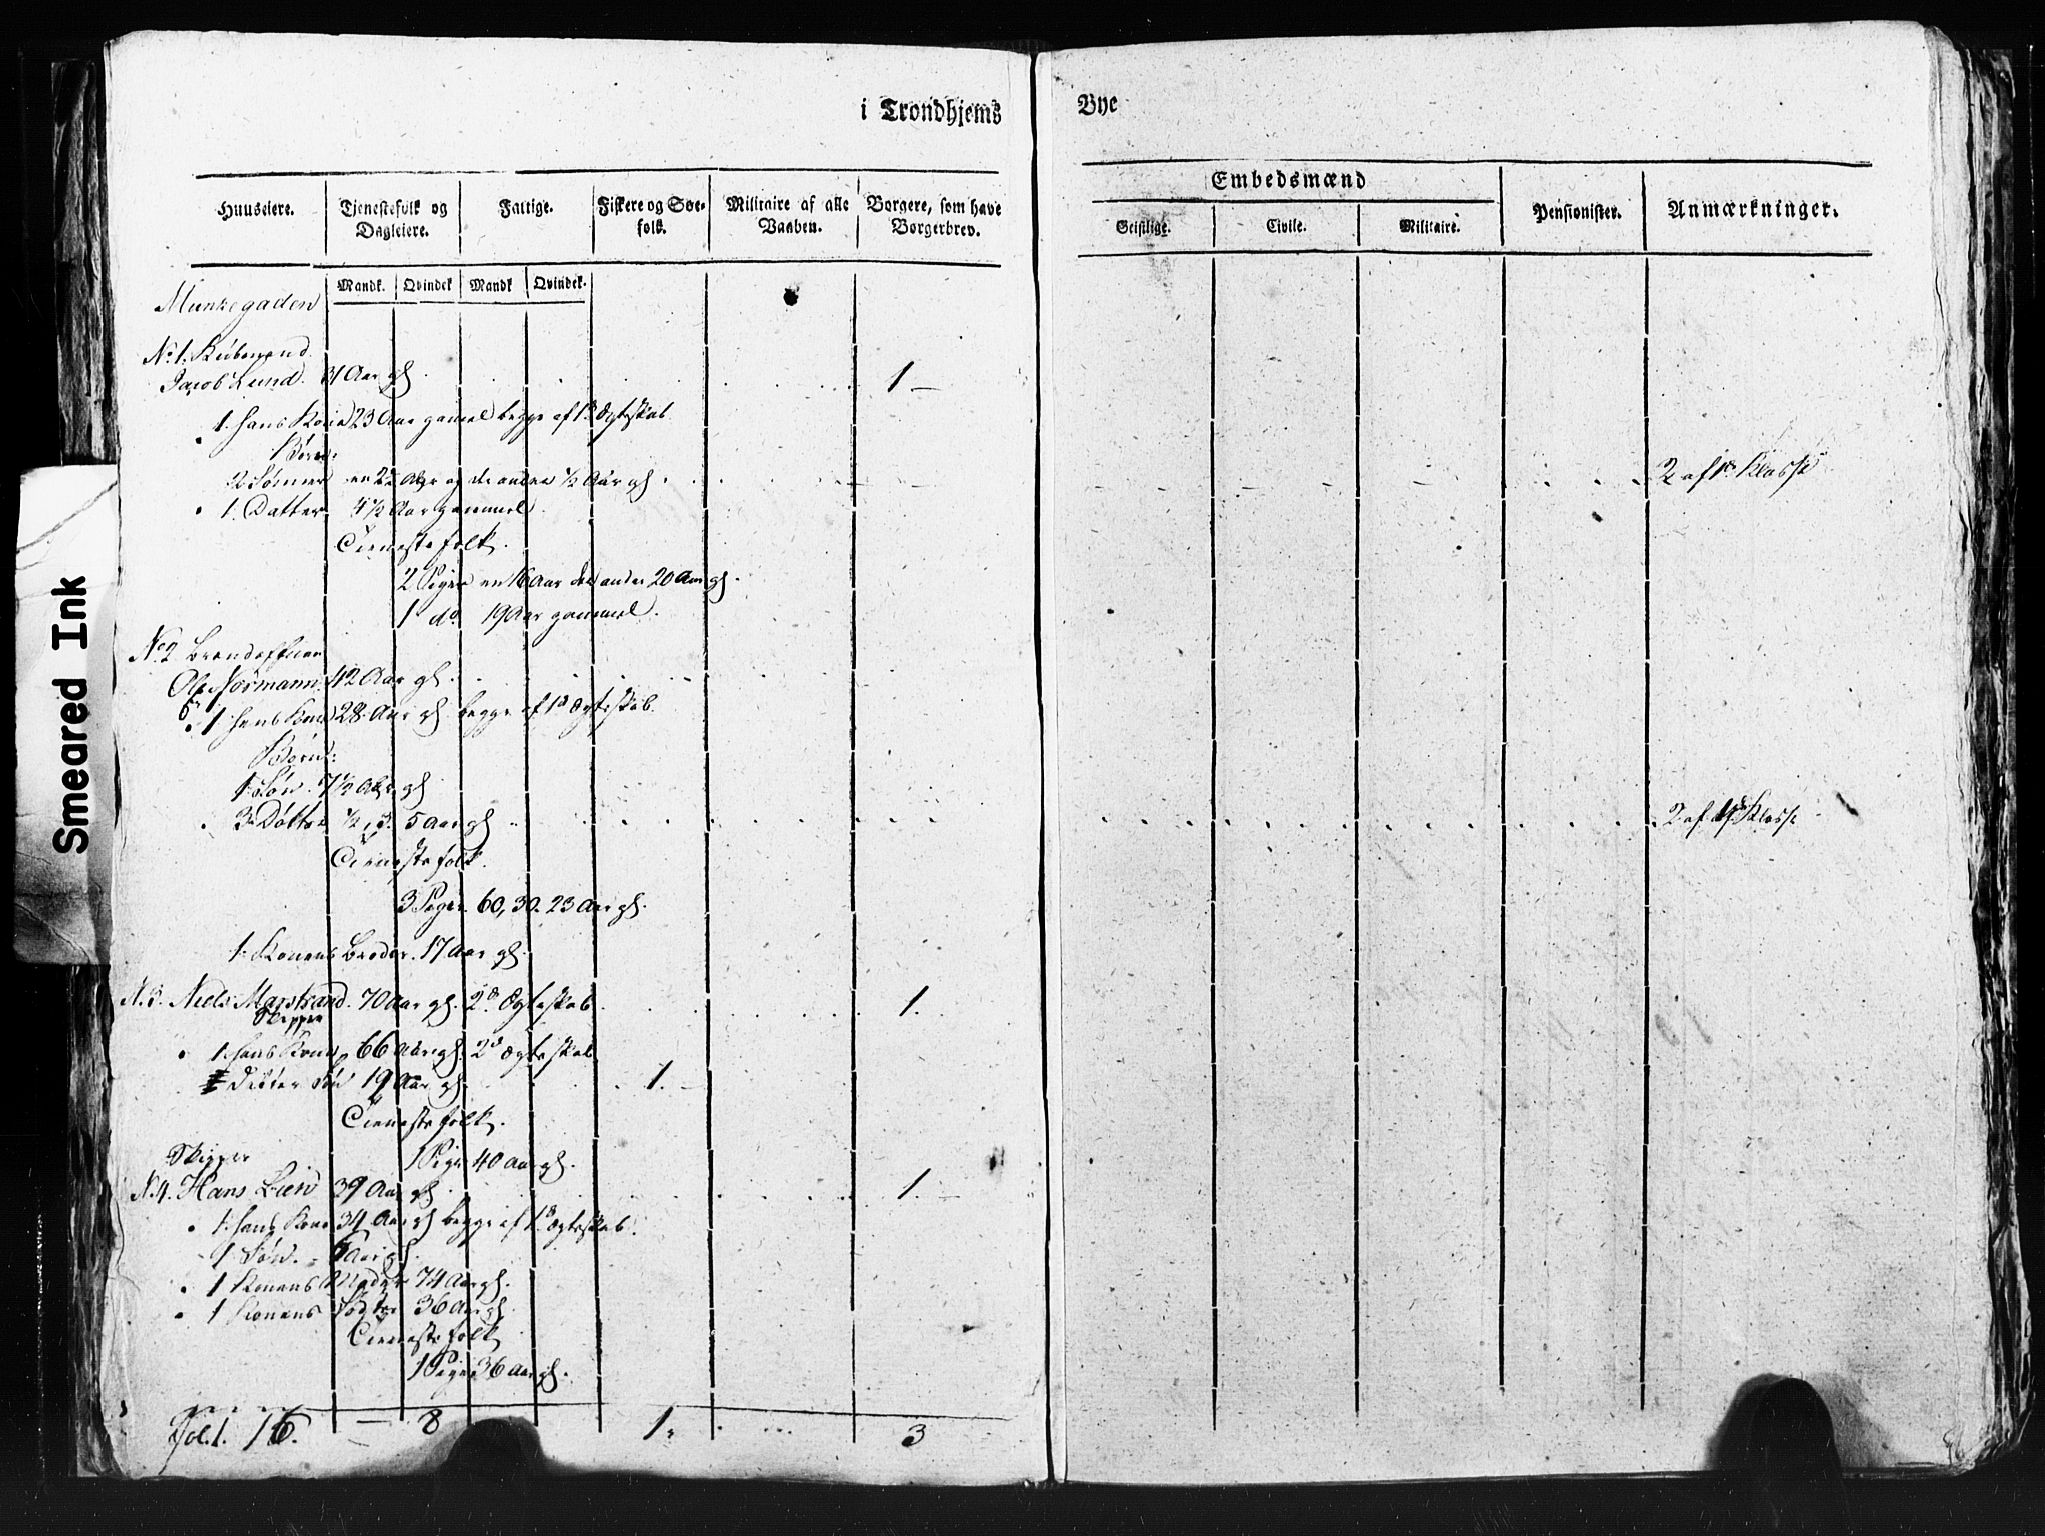 i Trondhjems
Huuseiere. Tjenestefolk og Dagleiere. Fattige. Fiskere og Søe-folk. Militaire af alle Vaaben. Borgere, som have Borgerbrev.
Mandk. Qvindek Mandk Qvindek.
Munkegaden
No 1.
Jacob Lund. 31 Aar gl. 1 —
1. hans Kone 23 Aar gammel begge af 1d Ægteskab
Børn:
2 Sønner en 2 Aar og de anden ½ Aar gl.
1. Datter 4½ Aar gammel
Tienestefolk.
2 Piger en 16 Aar den anden 20 Aar gl.
1 do 19 Aar gammel.
No 2
Ole Normann. 42 Aar gl.
1 hans Kone 28 Aar gl. begge af 1d Ægteskab.
Børn:
1 Søn. 7½ Aar gl
3 Døttre ½, 3. 5 Aar gl
Tienestefolk.
3 Piger. 60, 30. 23 Aar gl.
1 Konens Broder. 17 Aar gl.
N. 3. Niels Marstrand. 70 Aar gl. 2d Ægteskab. 1.
Skipper
1 hans Kone 66 Aar gl. 2d Ægteskab
Søn 19 Aar gl. 1. —
Tienestefolk.
1 Pige 40 Aar gl.
Skipper
N. 4. Hans Lien 39 Aar gl. 1. —
1. hans Kone 34 Aar gl begge af 1d Ægteskab.
1 Søn. Aar gl.
1 Konens Moder 74 Aar gl.
1 Konens Søster 36 Aar gl.
Tienestefolk
1 Pige 36 Aar gl.
Fol. 1. 16. — 8 1. 3
Bye
Embedsmænd
Geistlige. Civile. Militaire. Pensionister. Anmærkninger.
2 af 1e Klasse
2 af 1e Klasse
Smeared Ink